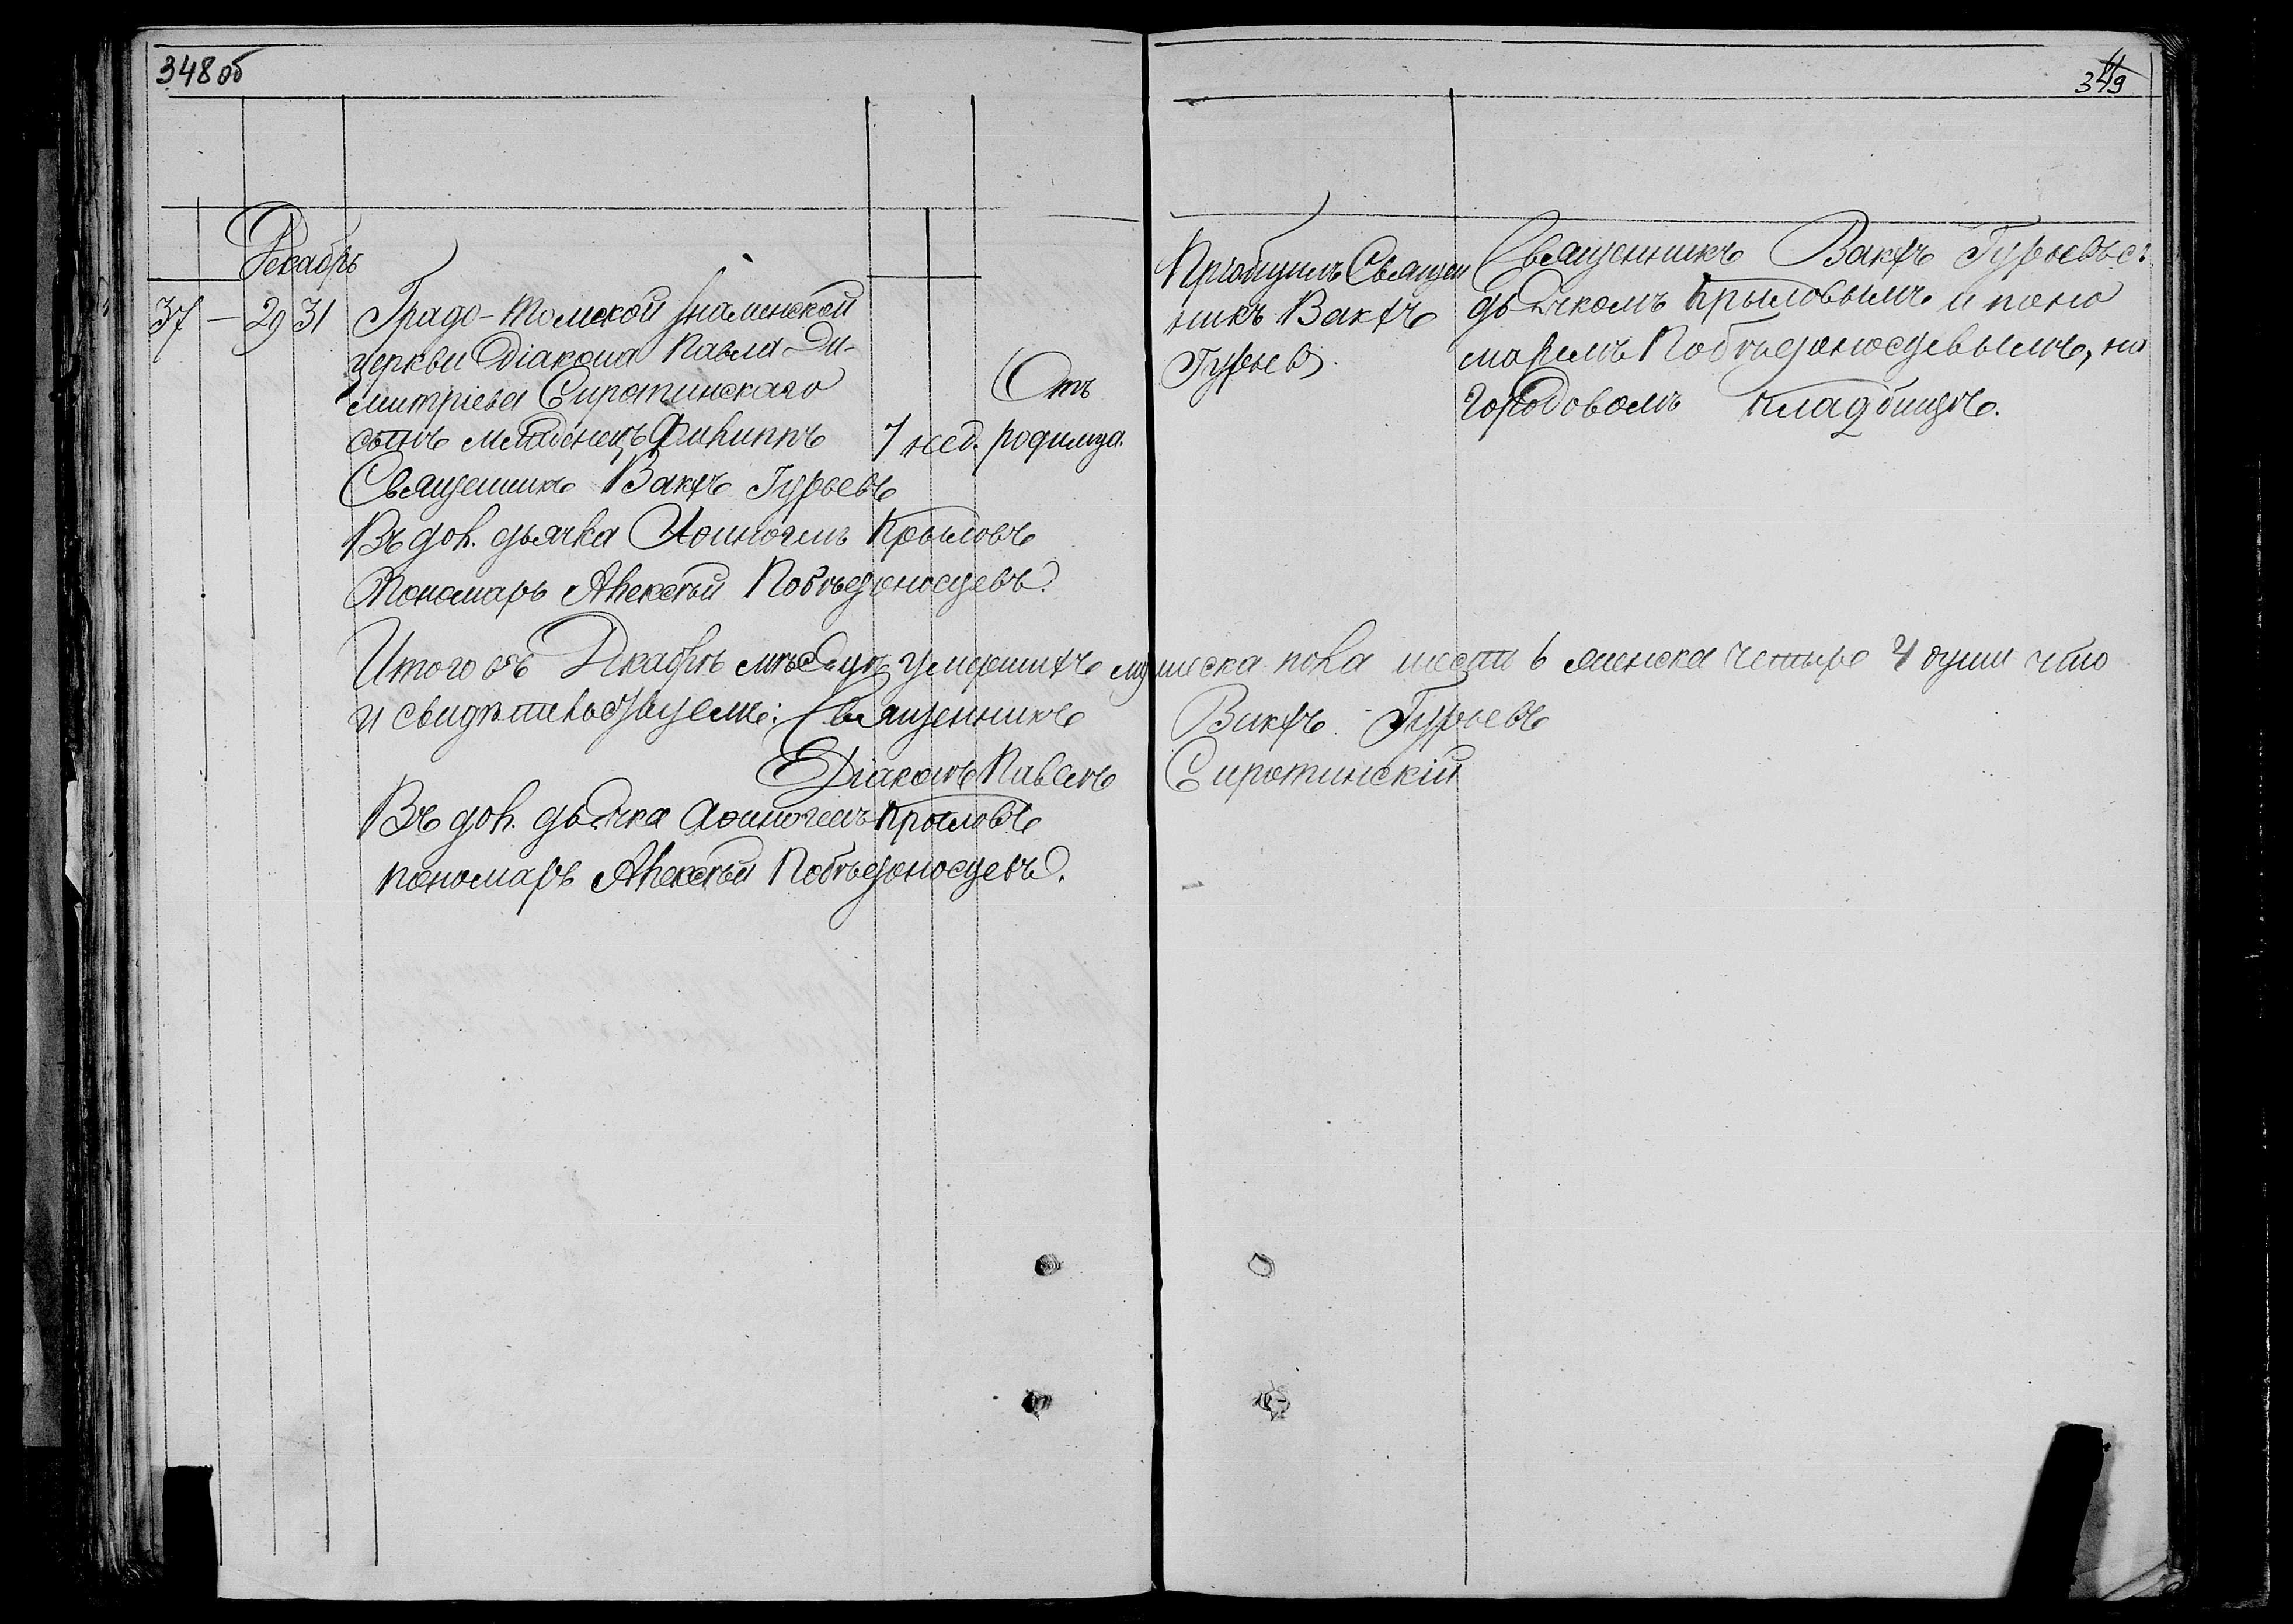 348 об
Декабрь
37 — 29 31 Градо-Томской Знаменской
церкви Діакона Павла Ди-
митріева Сиротинскаго
сынъ младенецъ Филиппъ 7 нед.
Отъ
родимца.
Священникъ Вакхъ Гурьевъ
Въ дол. дьячка Аѳиногенъ Крыловъ
Пономарь Алексѣй Побѣдоносцевъ.
Итого въ Декабрѣ мѣсяцѣ умершихъ мужеска пола шесть 6 женска четыре 4 души что
и свидѣтельствуемъ: Священникъ Вакхъ Гурьевъ
Діаконъ Павелъ Сиротинскій
Въ дол. дьячка Аѳиногенъ Крыловъ
пономарь Алексѣй Побѣдоносцевъ.
349
Пріобщилъ Священ
никъ Вакхъ
Гурьевъ.
Священникъ Вакхъ Гурьевъ съ
дьячкомъ Крыловымъ и поно
маремъ Побѣдоносцевымъ, на
городовомъ кладбищѣ.